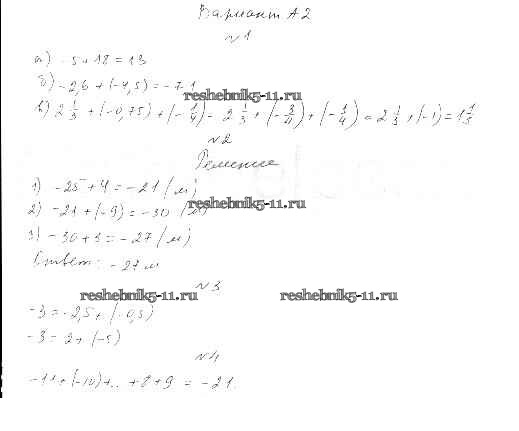 Вариант А2
№1
а) -5+18=13
б) -2,6+(-4,5)=-7,1
reshebnik5-11.ru
в) 2 1/3 + (-0,75) + (-1/4) = 2 1/3 + (-3/4) + (-1/4) = 2 1/3 + (-1) = 1 1/3
№2
Решение
1) -25+4=-21 (м)
reshebnik5-11.ru
2) -21+(-9)=-30 (м)
3) -30+3=-27 (м)
Ответ: -27 м
№3
reshebnik5-11.ru reshebnik5-11.ru
-3=-2,5+(-0,5)
-3=2+(-5)
№4
-11+(-10)+..+8+9=-21.